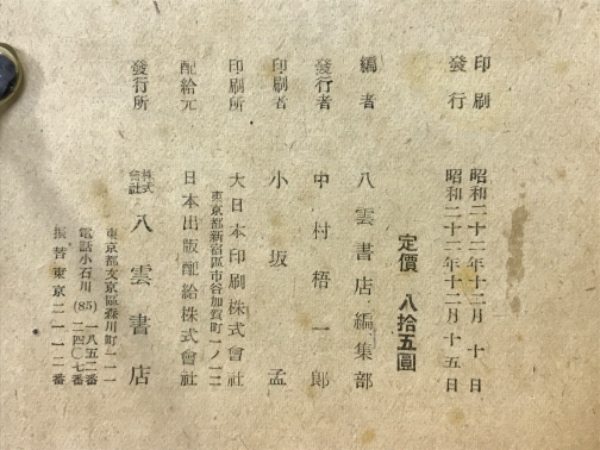 印刷 昭和二十二年十二月十日
發行 昭和二十二年十二月十五日
定價 八拾五圓
編者 八雲書店編集部
發行者 中村梧一郎
印刷者 小坂孟
東京都新宿區市谷加賀町一ノ一二
印刷所 大日本印刷株式會社
配給元 日本出版配給株式會社
發行所 株式會社 八雲書店
東京都文京區森川町一一一
電話小石川(85)一八五二番 二四〇七番
振替東京二一一二番